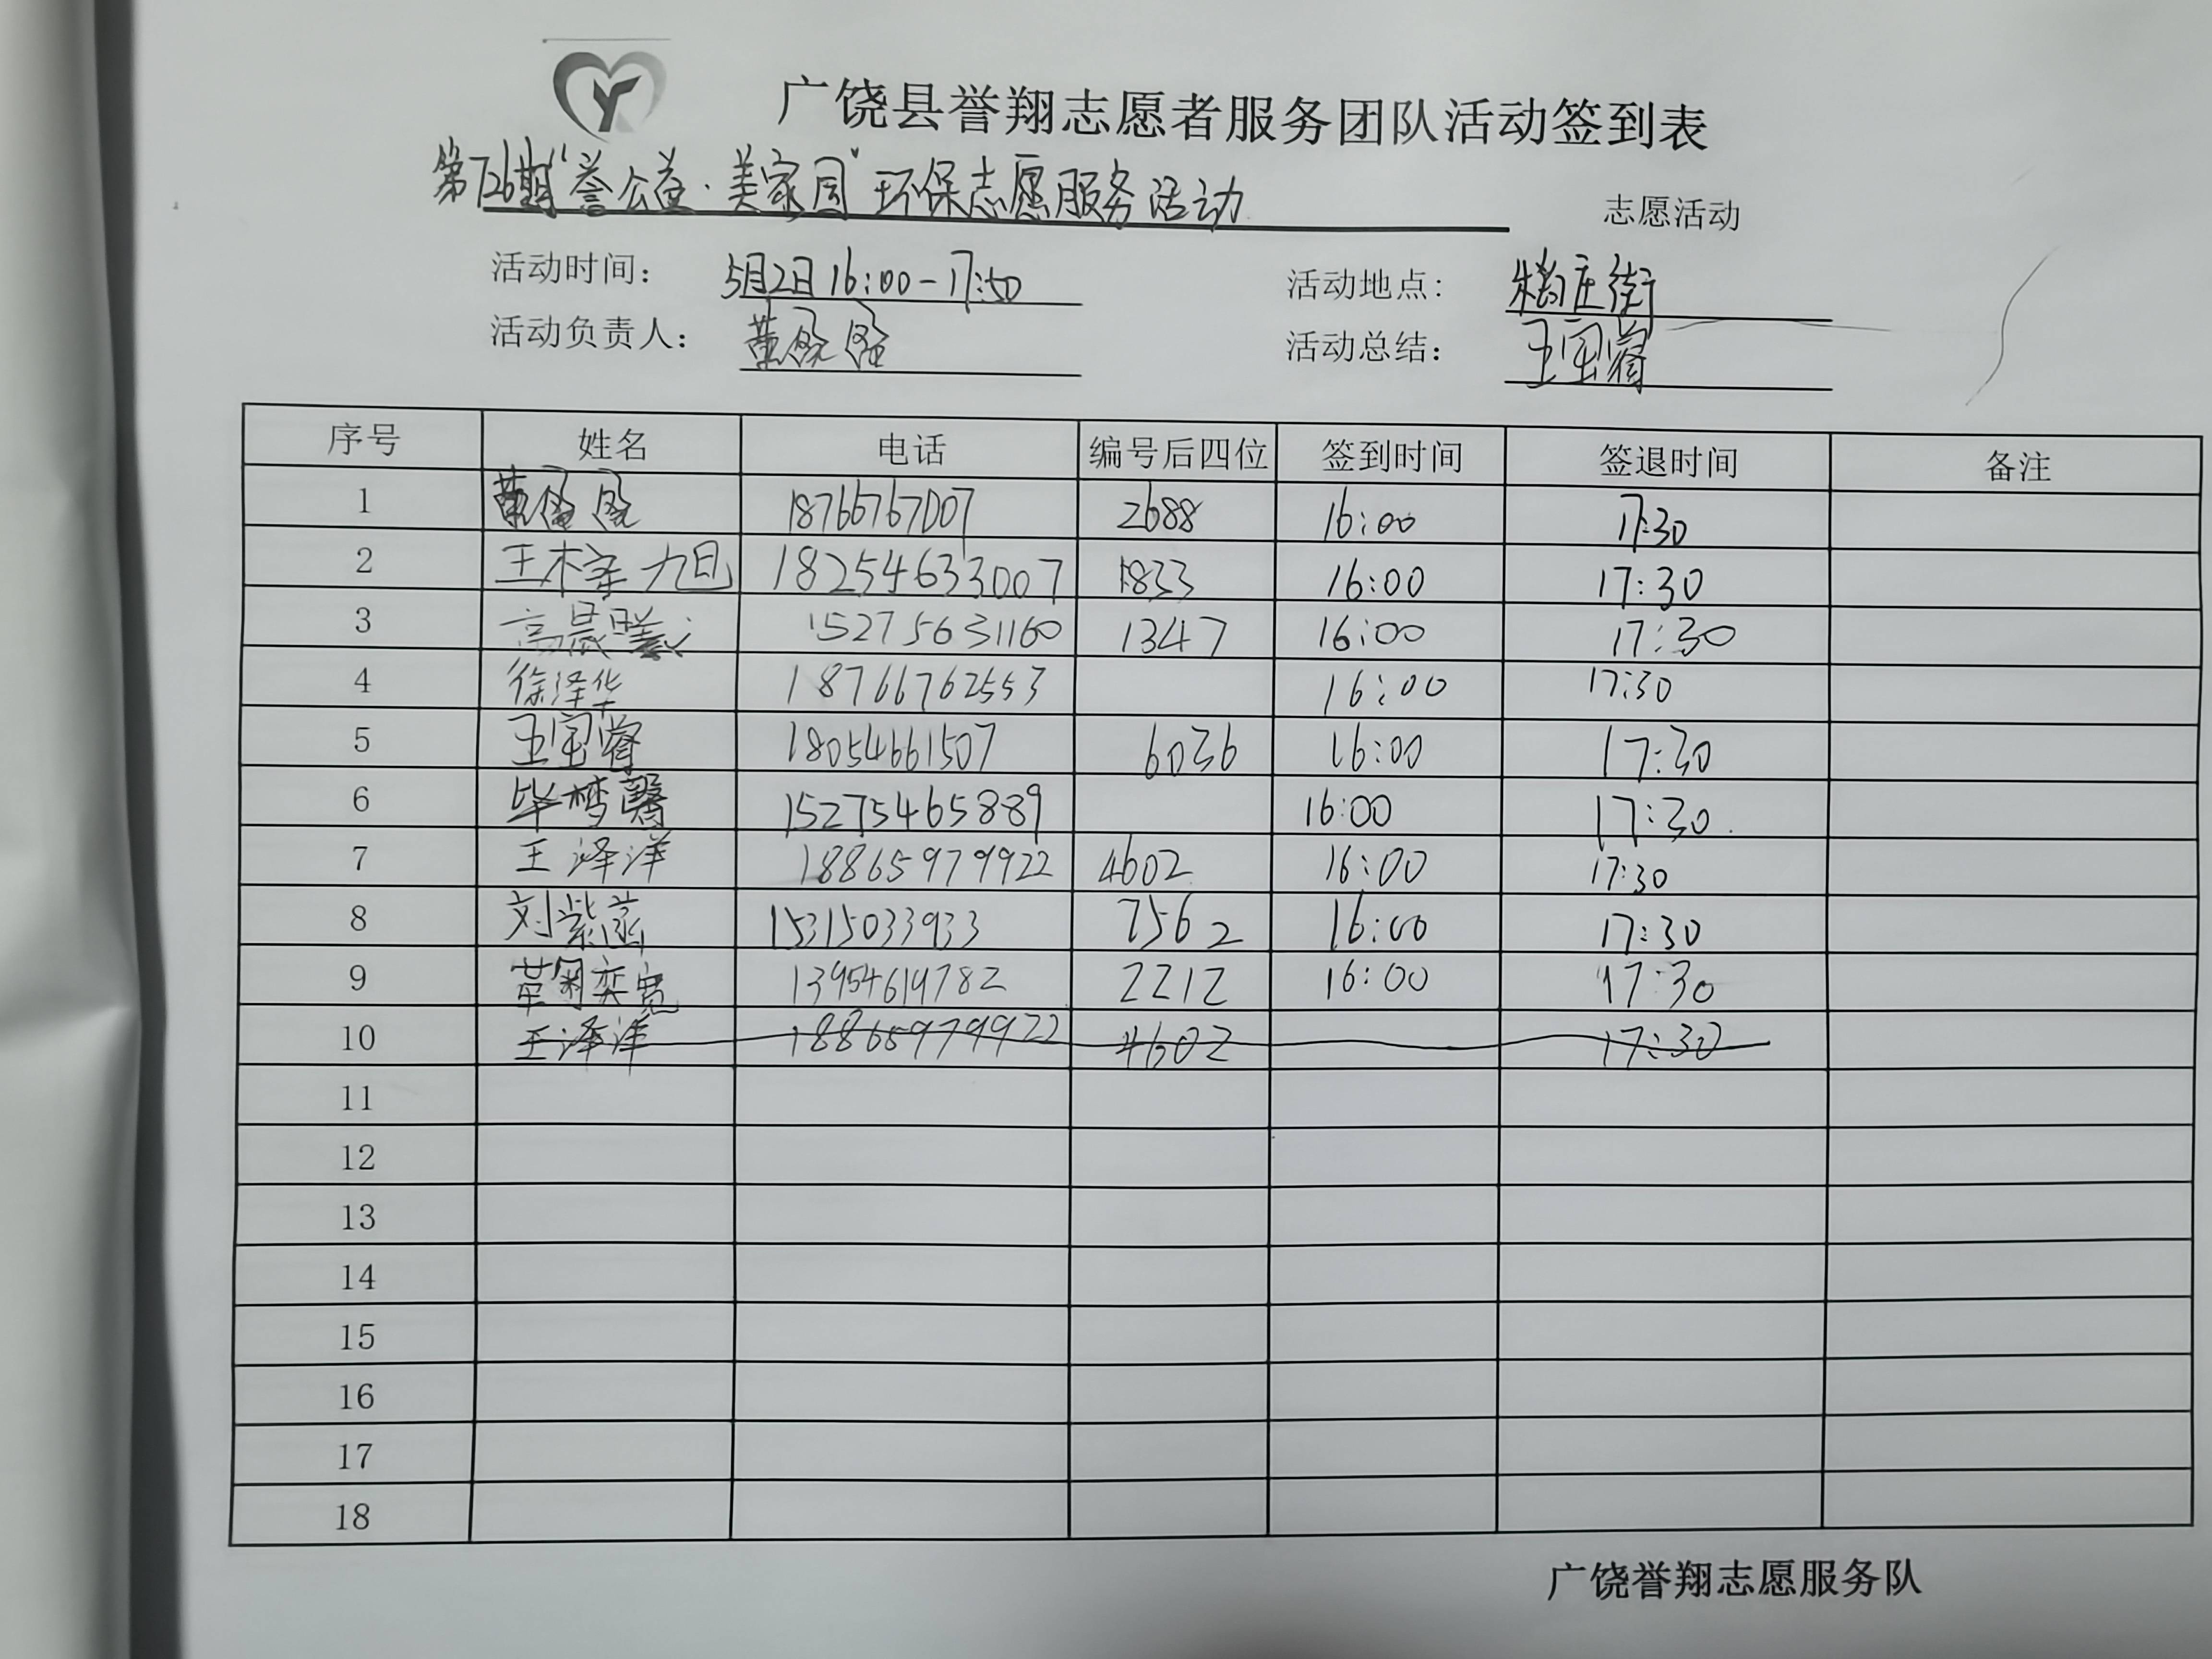 广饶县誉翔志愿者服务团队活动签到表
第726期“誉公益·美家园”环保志愿服务活动 志愿活动
活动时间： 5月2日 16:00-17:50 活动地点： 庄街
活动负责人： 活动总结： 王宝睿
序号 姓名 电话 编号后四位 签到时间 签退时间 备注
1 18766767007 2688 16:00 17:30
2 王木泽旭 18254633007 1833 16:00 17:30
3 高晨曦 15275631160 1347 16:00 17:30
4 徐泽华 18766762553 16:00 17:30
5 王宝睿 18054661507 6036 16:00 17:30
6 毕梦馨 15275465889 16:00 17:30
7 王泽洋 18865979922 4602 16:00 17:30
8 刘紫菡 15315033933 7562 16:00 17:30
9 奕宽 13954619782 2212 16:00 17:30
10 王泽洋 18865979922 4602 17:30
11
12
13
14
15
16
17
18
广饶誉翔志愿服务队